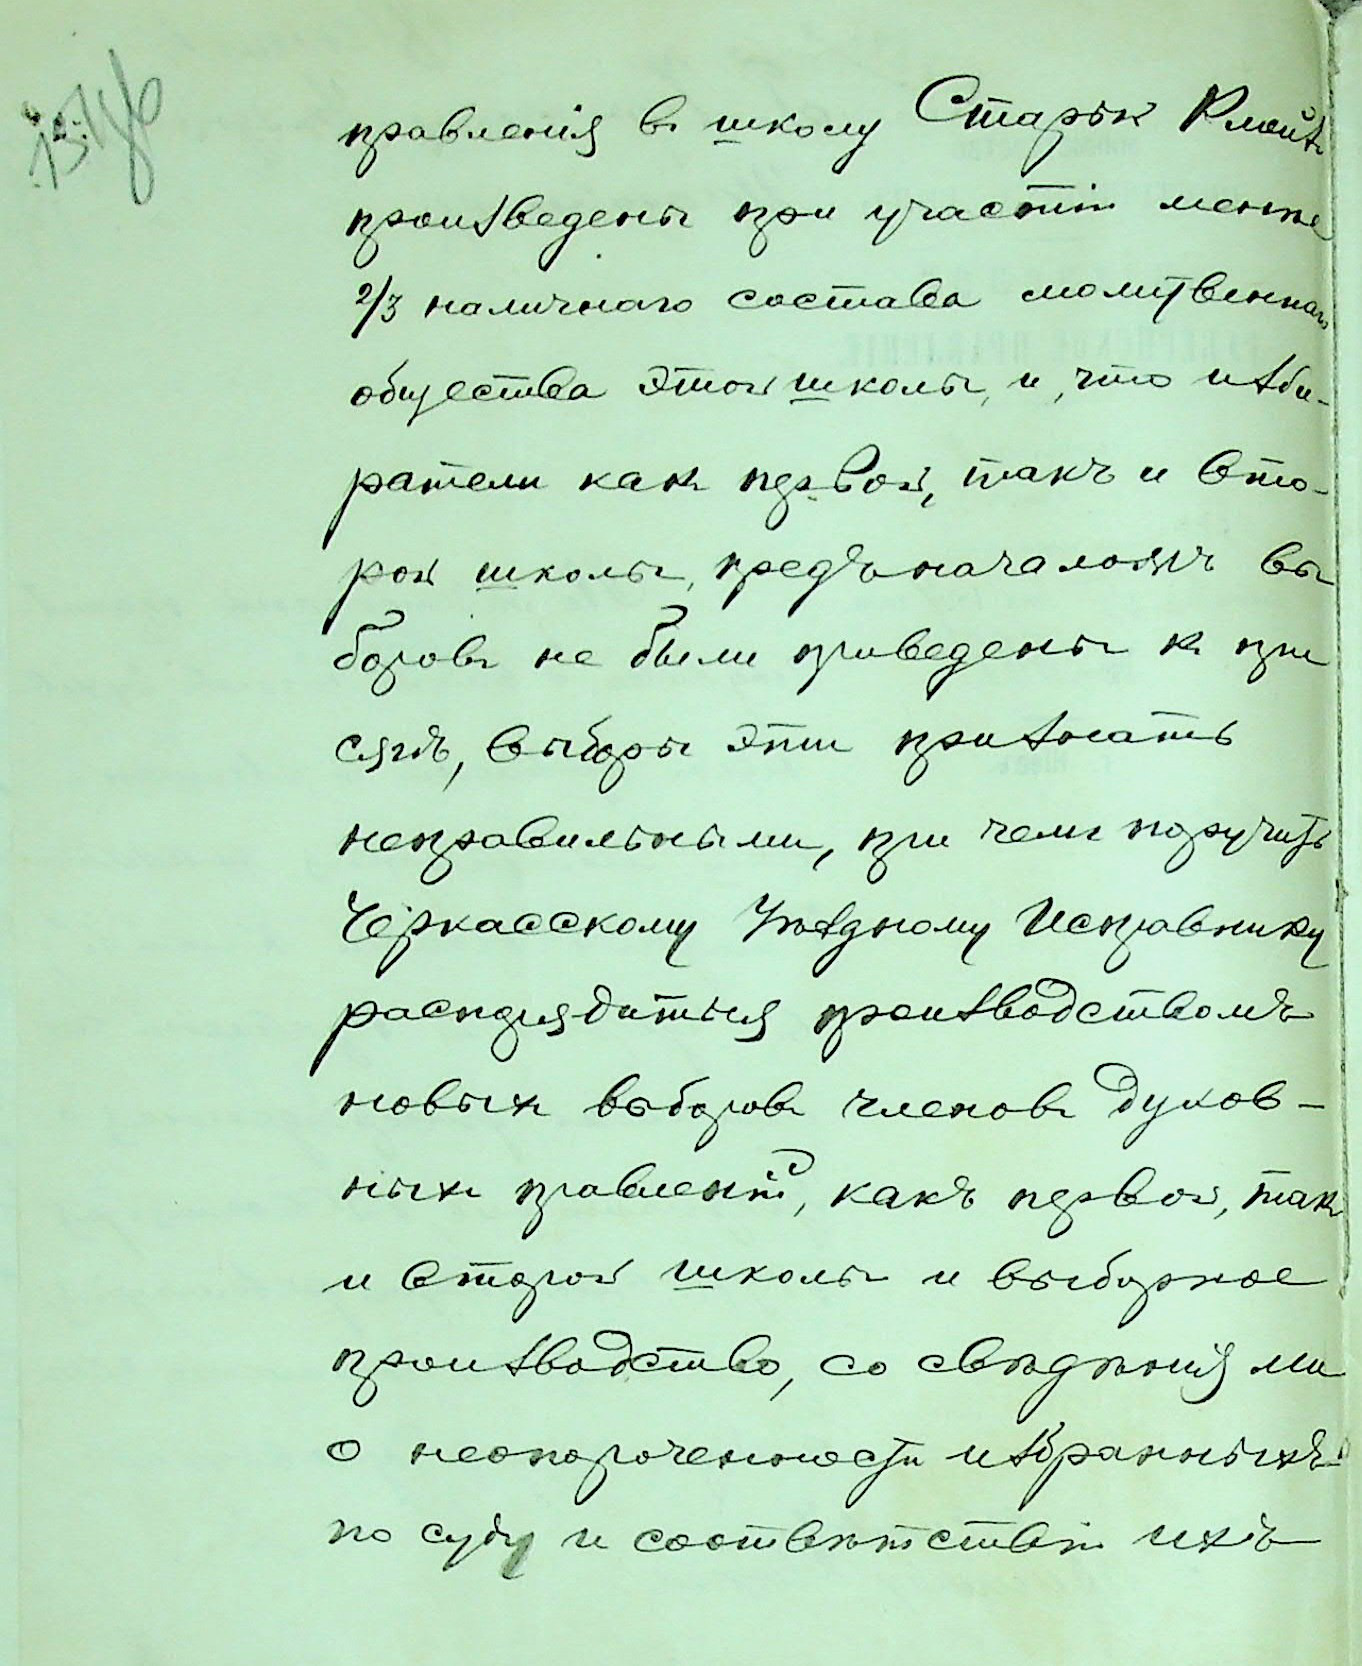 правленія въ школу Старый Клойзъ
произведены при участіи менѣе
2/3 наличнаго состава молитвеннаго
общества этой школы, и, что изби-
ратели какъ первой, такъ и вто-
рой школы, предъ началомъ вы
боровъ не были приведены къ при
сягѣ, выборы эти признать
неправильными, при чемъ поручить
Черкасскому Уѣздному Исправнику
распорядиться производствомъ
новыхъ выборовъ членовъ духов-
ныхъ правленій, какъ первой, такъ
и второй школы и выборное
производство, со свѣдѣніями
о неопороченности избранныхъ
по суду и соотвѣтствіи ихъ